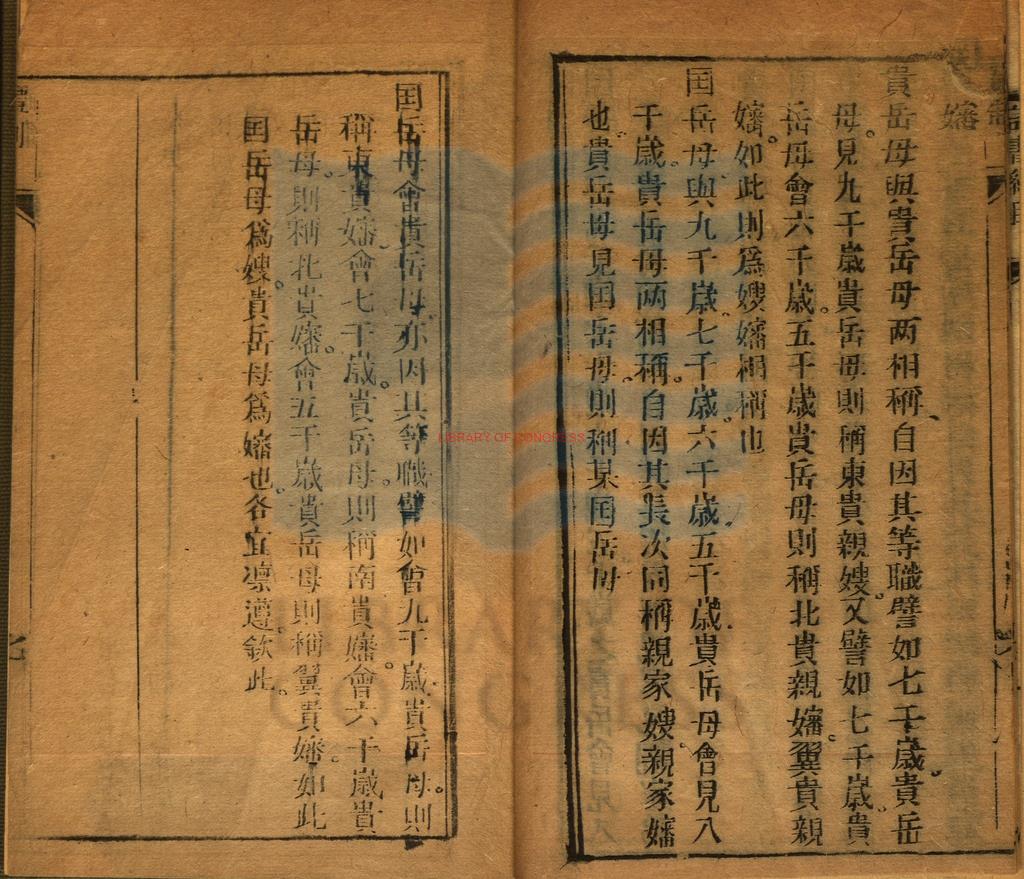 嬸
貴岳母與貴岳母两相稱、自因其等職譬如七千歲。貴岳
母。見九千歲貴岳母則稱東貴親嫂。又譬如七千歲。貴
岳母會六千歲。五千歲貴岳母則稱北貴親嬸翼貴親
嬸。如此則爲嫂嬸相稱也
囯岳母與九千歲。七千歲。六千歲。五千歲貴岳母會見八
千歲。貴岳母两相稱。自因其長次同稱親家嫂。親家嬸
也。貴岳母見囯岳母。則稱某囯岳母
囯岳母會貴岳母。亦因其等職譬如會九千歲貴岳母。則
稱東貴嬸會七千歲。貴岳母。則稱南貴嬸。會六千歲貴
岳母。則稱北貴嬸。會五千歲貴岳母則稱翼貴嬸。如此
囯岳母爲嫂。貴岳母爲嬸也。各宜凛遵。欽此。
LIBRARY OF CONGRESS